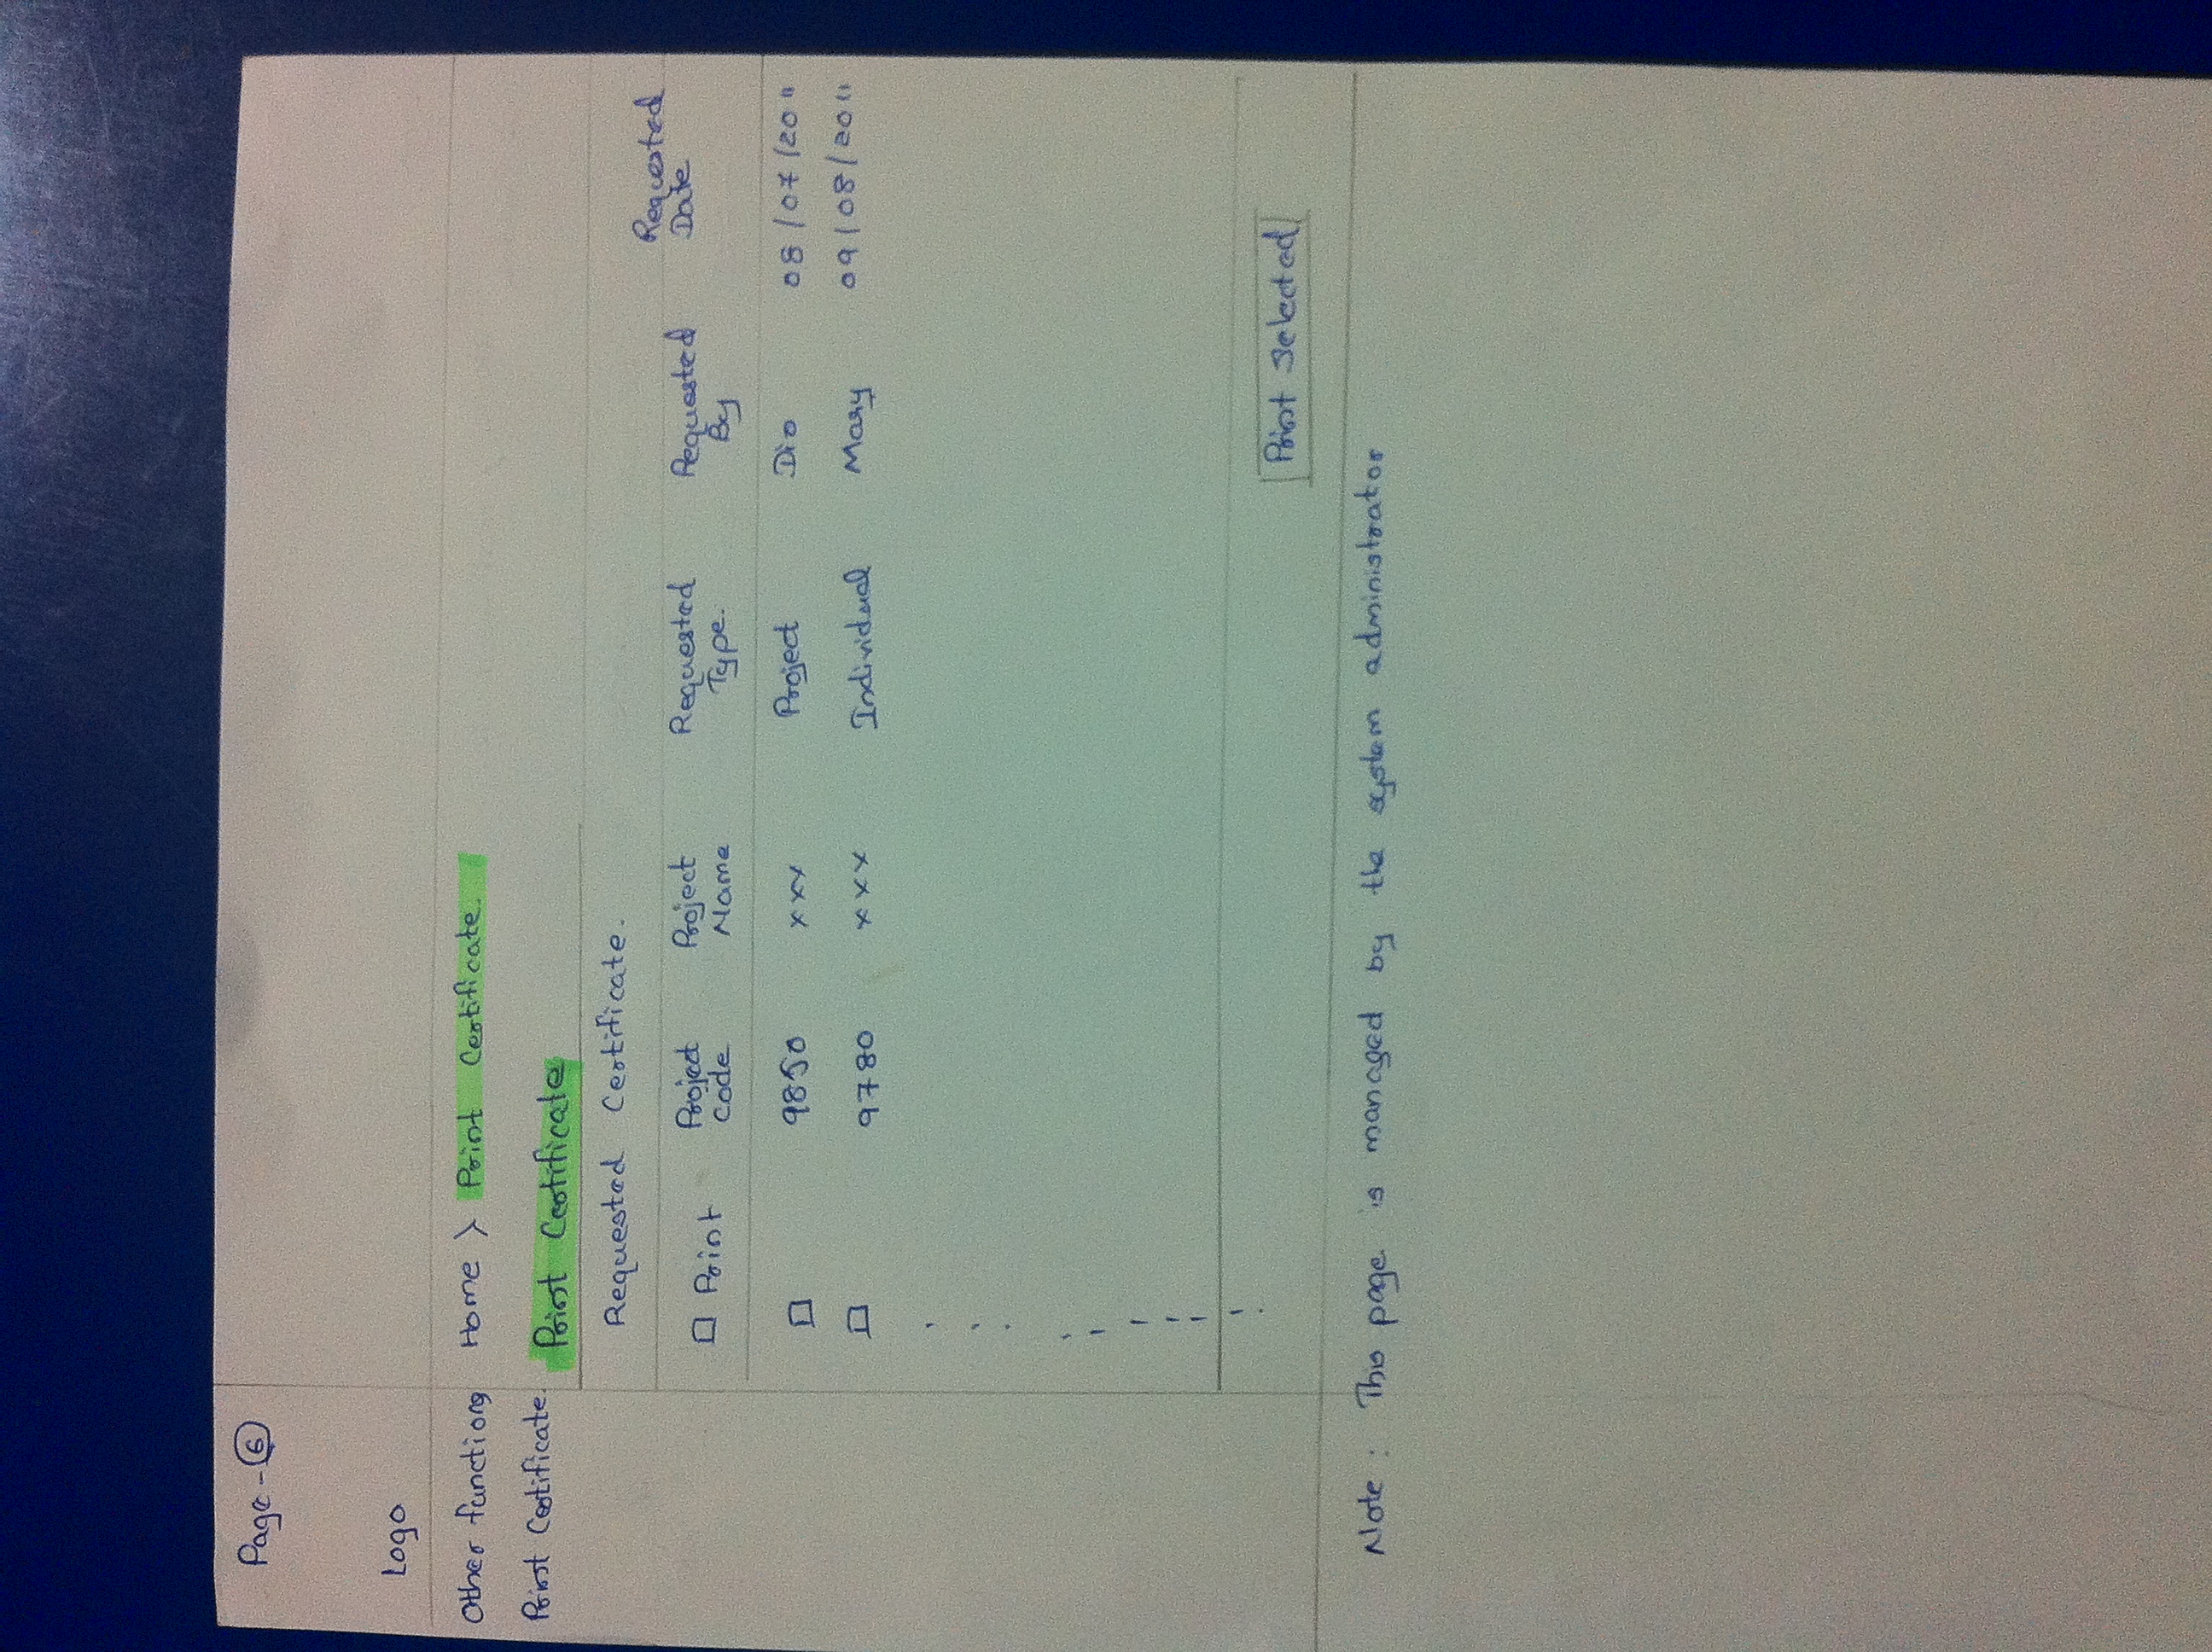 Page - 6
Logo
Other functions
Home > Print Certificate.
Print Certificate.
Print Certificate
Requested Certificate.
Print Project Code Project Name Requested Type. Requested By Requested Date
9850 xxx Project Dio 08/07/2011
9780 xxx Individual Mary 09/08/2011
Print Selected
Note : This page is managed by the system administrator